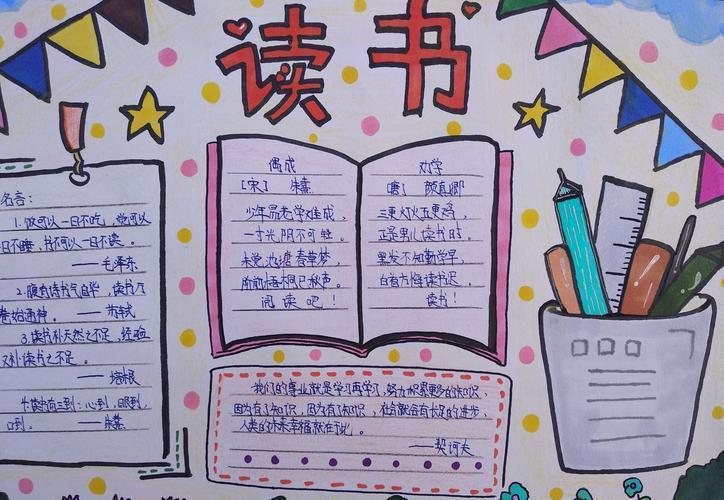 读书
名言:
1.饭可以一日不吃,觉可以
一日不睡,书不可以一日不读。
——毛泽东
2.腹有诗书气自华,读书万
卷始通神。——苏轼
3.读书补天然之不足,经验
又补读书之不足。
——培根
4.读书有三到:心到,眼到,
口到。——朱熹
偶成
[宋] 朱熹
少年易老学难成,
一寸光阴不可轻。
未觉池塘春草梦,
阶前梧桐已秋声。
阅读吧!
劝学
[唐] 颜真卿
三更灯火五更鸡,
正是男儿读书时。
黑发不知勤学早,
白首方悔读书迟。
读书!
我们的事业就是学习再学习,努力积累更多的知识,
因为有了知识,因为有了知识,社会就会有长足的进步,
人类的未来幸福就在于此。
——契诃夫